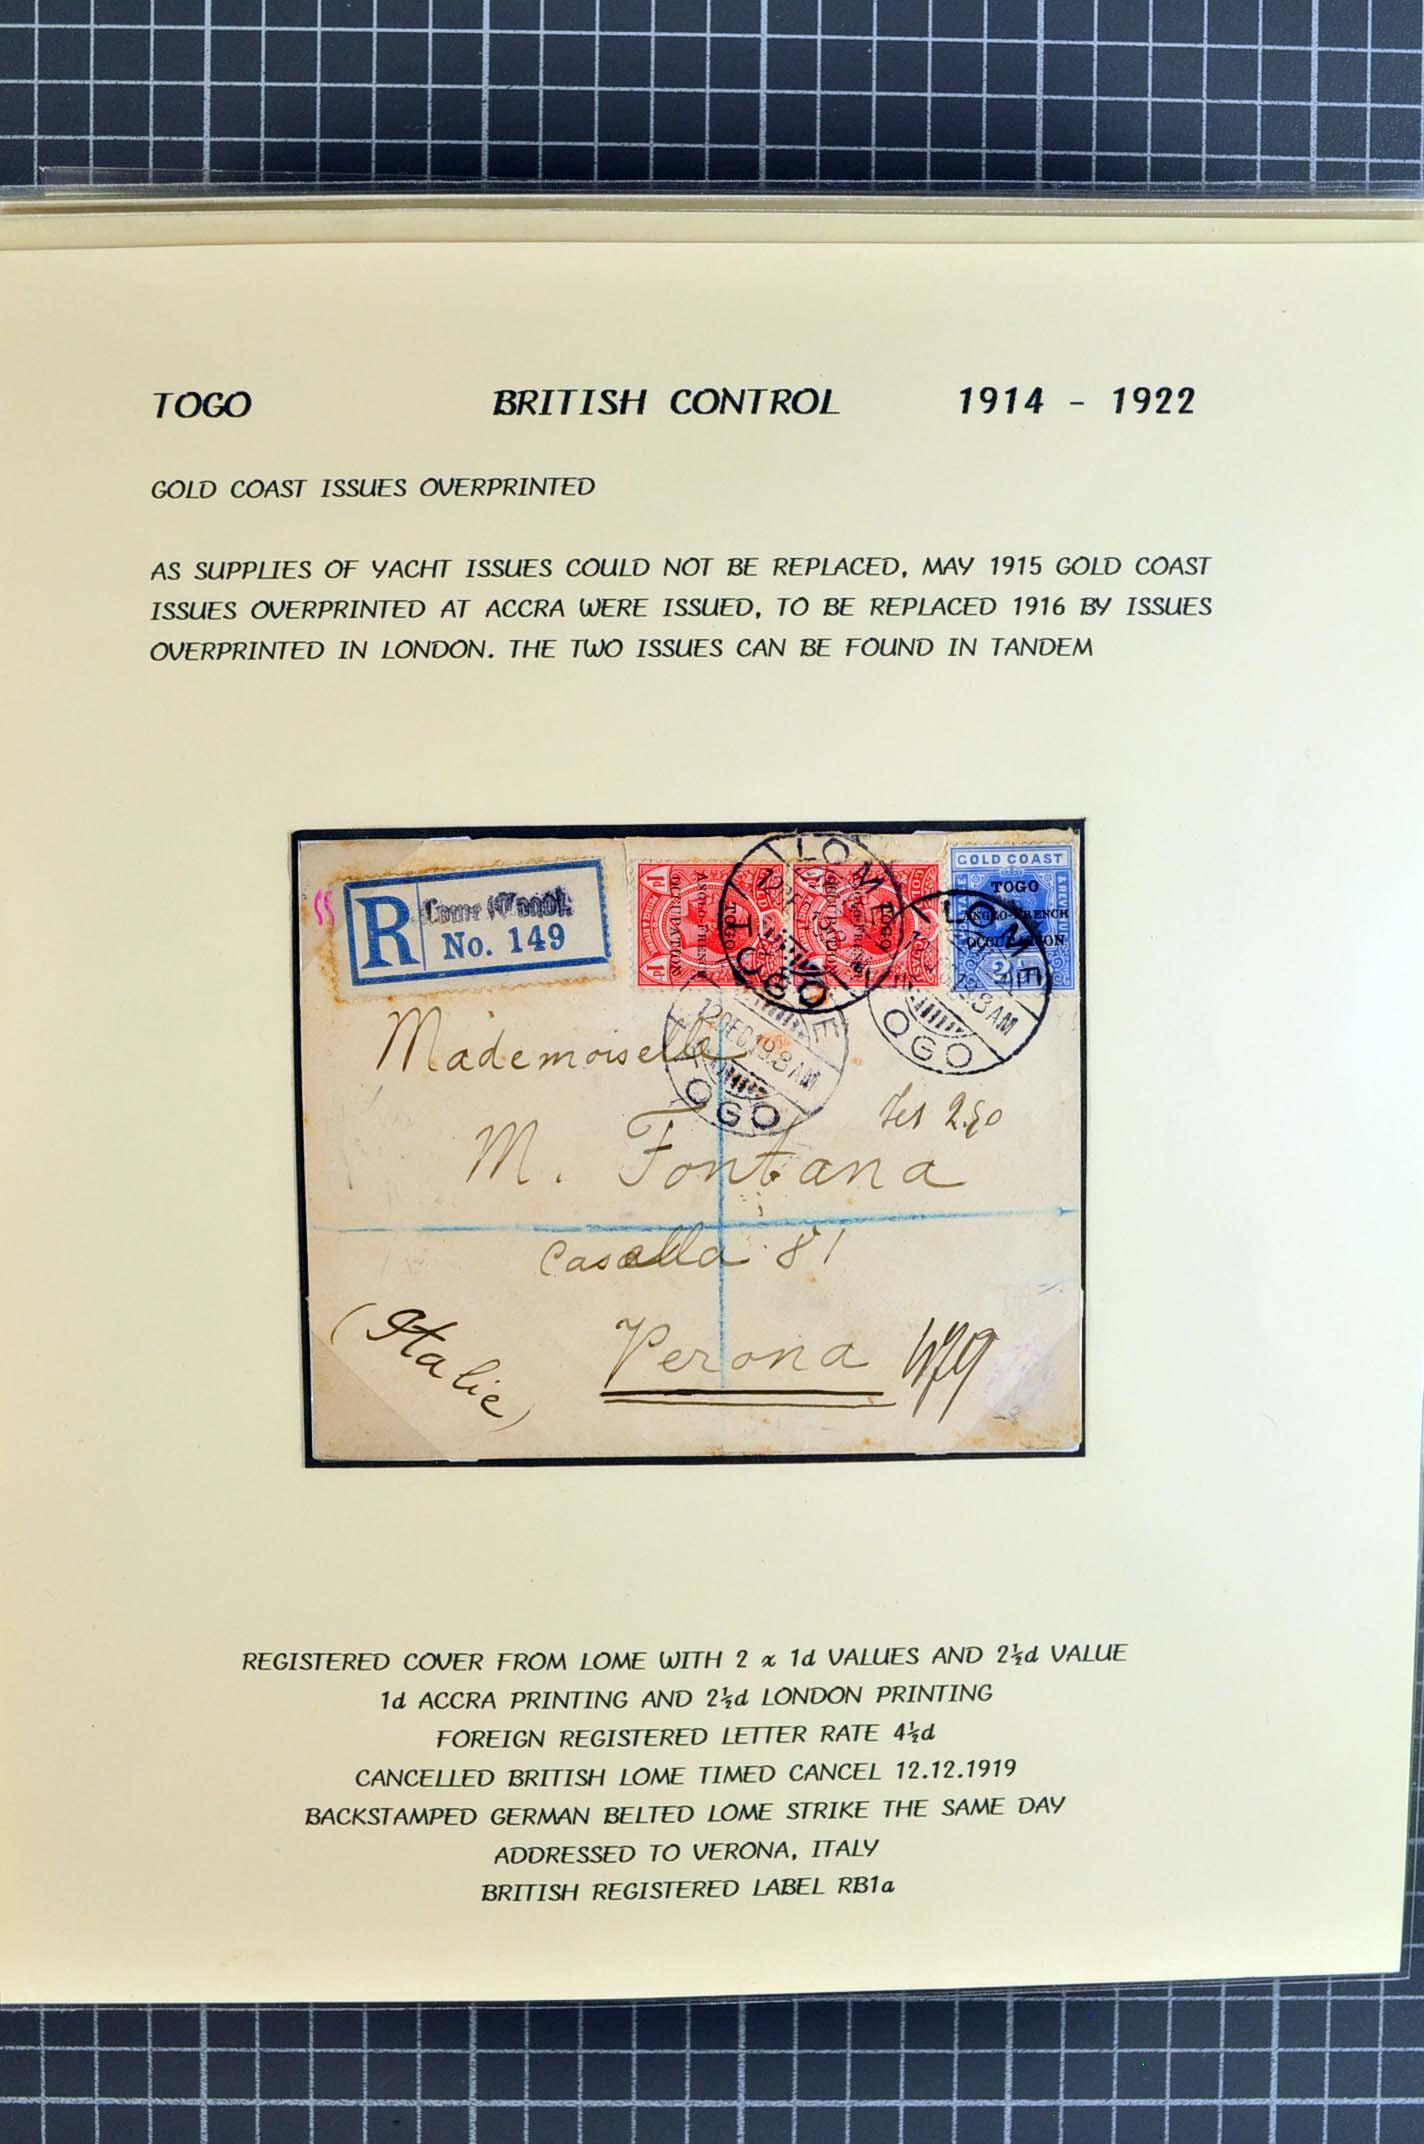 TOGO BRITISH CONTROL 1914 - 1922
GOLD COAST ISSUES OVERPRINTED
AS SUPPLIES OF YACHT ISSUES COULD NOT BE REPLACED, MAY 1915 GOLD COAST
ISSUES OVERPRINTED AT ACCRA WERE ISSUED, TO BE REPLACED 1916 BY ISSUES
OVERPRINTED IN LONDON. THE TWO ISSUES CAN BE FOUND IN TANDEM
R
No. 149
TOGO
ANGLO-FRENCH
OCCUPATION
TOGO
ANGLO-FRENCH
OCCUPATION
GOLD COAST
TOGO
ANGLO-FRENCH
OCCUPATION
LOME
TOGO
LOME
12 DEC 19.8 AM
TOGO
12 DEC 19.8 AM
TOGO
Mademoiselle
M. Fontana
2.50
Casella 81
(Italie)
Verona
REGISTERED COVER FROM LOME WITH 2 x 1d VALUES AND 2½d VALUE
1d ACCRA PRINTING AND 2½d LONDON PRINTING
FOREIGN REGISTERED LETTER RATE 4½d
CANCELLED BRITISH LOME TIMED CANCEL 12.12.1919
BACKSTAMPED GERMAN BELTED LOME STRIKE THE SAME DAY
ADDRESSED TO VERONA, ITALY
BRITISH REGISTERED LABEL RB1a